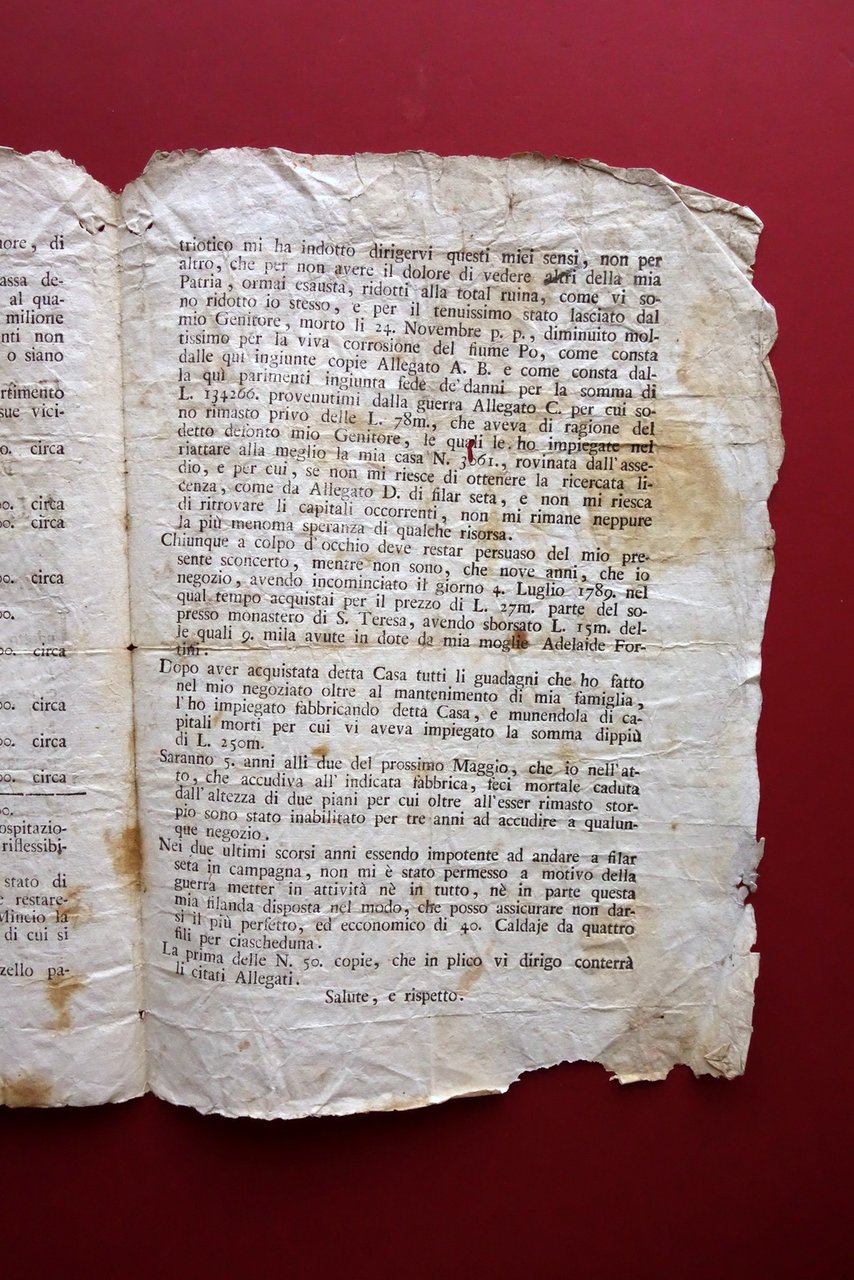 nore, di
assa de-
al qua-
milione
nti non
o siano
rtimento
sue vici-
o. circa
oo. circa
oo. circa
oo. circa
oo.
oo. circa
oo. circa
oo. circa
oo. circa
oo.
ospitazio-
riflessibi-
stato di
e restare-
Mincio la
di cui si
zello pa-
triotico mi ha indotto dirigervi questi miei sensi, non per
altro, che per non avere il dolore di vedere altri della mia
Patria, ormai esausta, ridotti alla total ruina, come vi so-
no ridotto io stesso, e per il tenuissimo stato lasciato dal
mio Genitore, morto li 24. Novembre p. p., diminuito mol-
tissimo per la viva corrosione del fiume Po, come consta
dalle quì ingiunte copie Allegato A. B. e come consta dal-
la quì parimenti ingiunta fede de' danni per la somma di
L. 134266. provenutimi dalla guerra Allegato C. per cui so-
no rimasto privo delle L. 78m., che aveva di ragione del
detto defonto mio Genitore, le quali le ho impiegate nel
riattare alla meglio la mia casa N. 3661., rovinata dall'asse-
dio, e per cui, se non mi riesce di ottenere la ricercata li-
cenza, come da Allegato D. di filar seta, e non mi riesca
di ritrovare li capitali occorrenti, non mi rimane neppure
la più menoma speranza di qualche risorsa.
Chiunque a colpo d'occhio deve restar persuaso del mio pre-
sente sconcerto, mentre non sono, che nove anni, che io
negozio, avendo incominciato il giorno 4. Luglio 1789. nel
qual tempo acquistai per il prezzo di L. 27m. parte del so-
presso monastero di S. Teresa, avendo sborsato L. 15m. del-
le quali 9. mila avute in dote da mia moglie Adelaide For-
tini.
Dopo aver acquistata detta Casa tutti li guadagni che ho fatto
nel mio negoziato oltre al mantenimento di mia famiglia,
l'ho impiegato fabbricando detta Casa, e munendola di ca-
pitali morti per cui vi aveva impiegato la somma dippiù
di L. 250m.
Saranno 5. anni alli due del prossimo Maggio, che io nell'at-
to, che accudiva all' indicata fabbrica, feci mortale caduta
dall'altezza di due piani per cui oltre all'esser rimasto stor-
pio sono stato inabilitato per tre anni ad accudire a qualun-
que negozio.
Nei due ultimi scorsi anni essendo impotente ad andare a filar
seta in campagna, non mi è stato permesso a motivo della
guerra metter in attività nè in tutto, nè in parte questa
mia filanda disposta nel modo, che posso assicurare non dar-
si il più perfetto, ed ecconomico di 40. Caldaje da quattro
fili per ciascheduna.
La prima delle N. 50. copie, che in plico vi dirigo conterrà
li citati Allegati.
Salute, e rispetto.